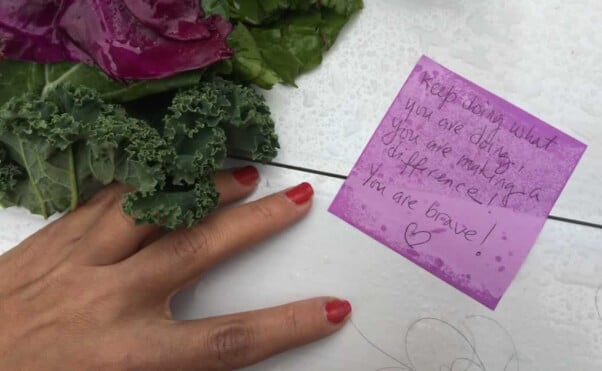 Keep doing what
you are doing.
You are making a
difference!
You are brave!
♡